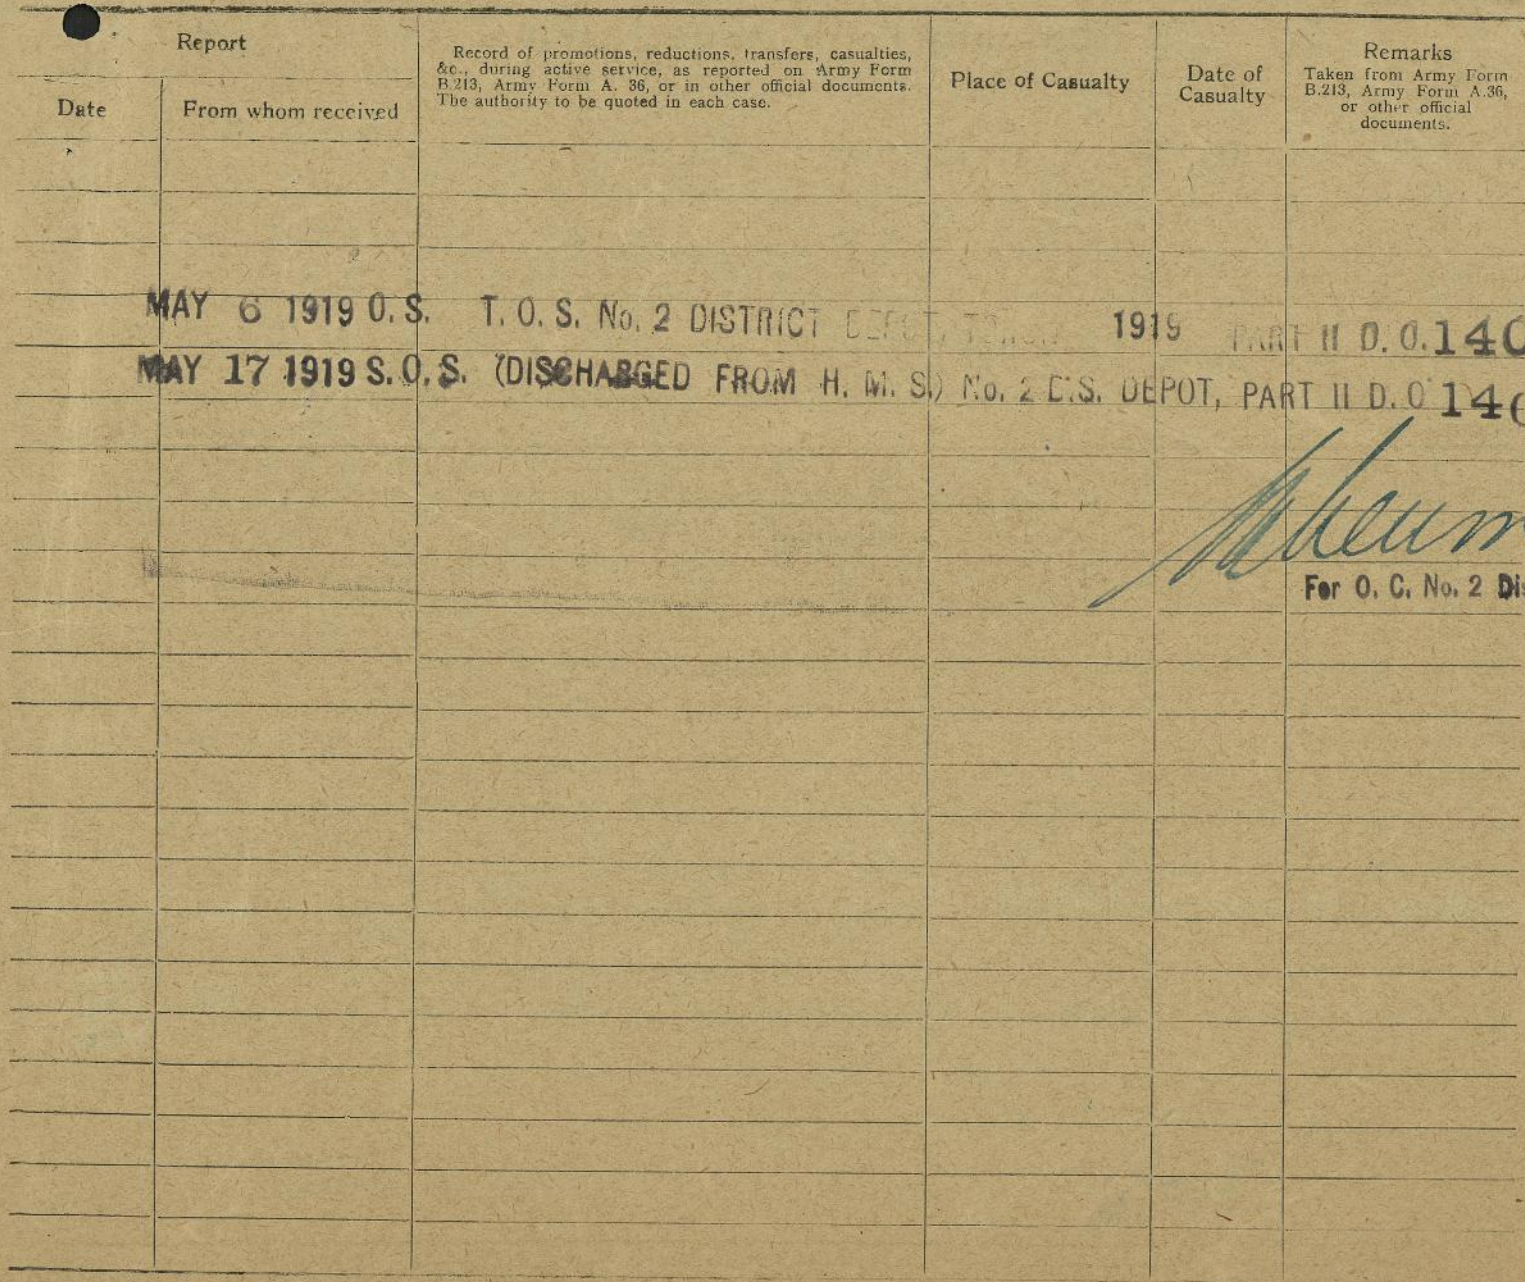 Report
Date
From whom received
Record of promotions, reductions, transfers, casualties,
&c., during active service, as reported on Army Form
B.213, Army Form A. 36, or in other official documents.
The authority to be quoted in each case.
Place of Casualty
Date of
Casualty
Remarks
Taken from Army Form
B.213, Army Form A.36,
or other official
documents.
MAY 6 1919 O.S. T. O. S. No. 2 DISTRICT DEPOT, 1919 PART II D. O. 140
MAY 17 1919 S.O.S. (DISCHARGED FROM H. M. S.) No. 2 D.S. DEPOT, PART II D.O 146
For O. C. No. 2 Dis